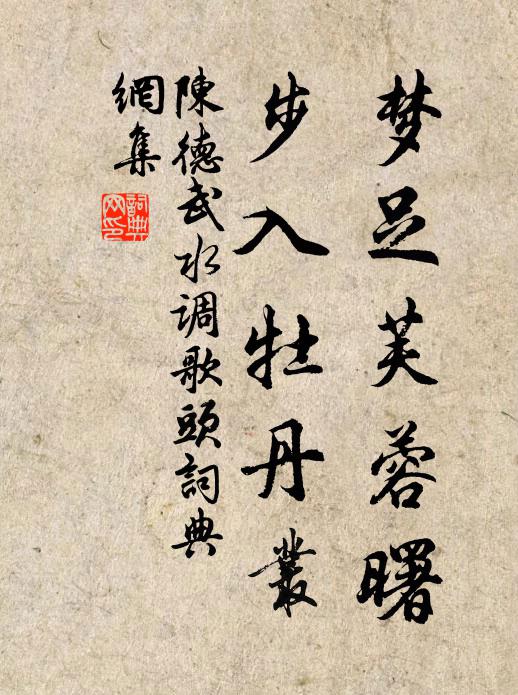 梦足芙蓉曙
步入牡丹叢
陳德武水调歌頭詞典
網集
詞典
网印